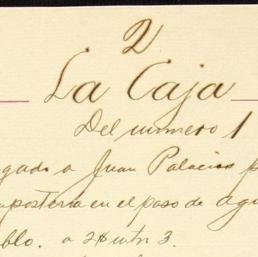 2
La Caja
Del numero 1
gado a Juan Palacios p
mposteria en el paso de agu
blo. a 2